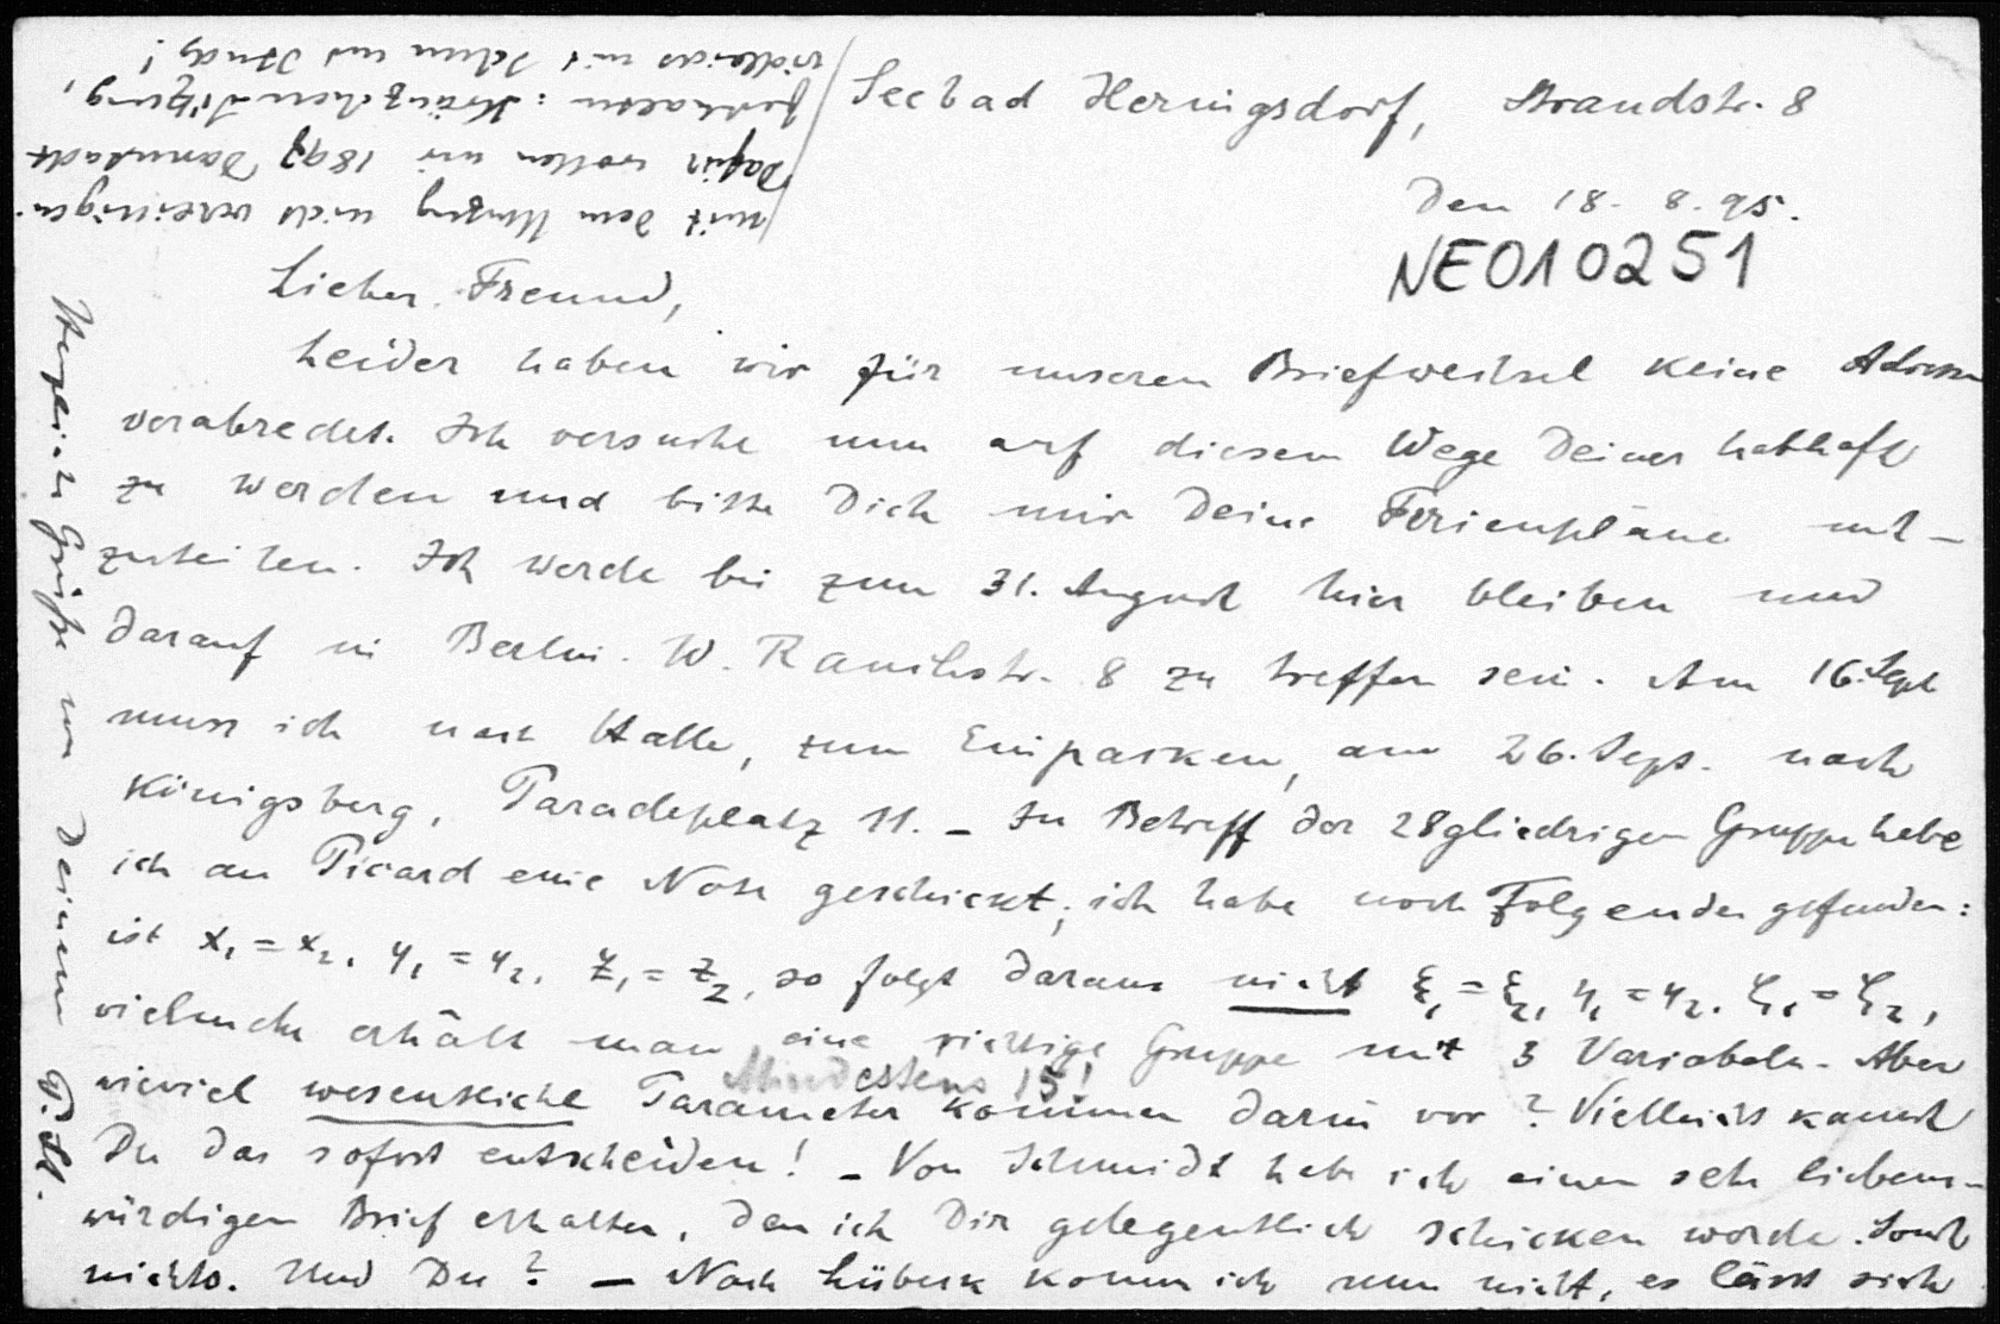 Seebad Heringsdorf, Strandstr. 8
Den 18. 8. 95.
NE010251
Lieber Freund,
Leider haben wir für unseren Briefwechsel keine Adresse
verabredet. Ich versuche nun auf diesem Wege Deiner habhaft
zu werden und bitte Dich mir Deine Ferienpläne mit-
zuteilen. Ich werde bis zum 31. August hier bleiben und
darauf in Berlin. W. Rauchstr. 8 zu treffen sein. Am 16. Sept
muss ich nach Halle, zum Einpacken, am 26. Sept. nach
Königsberg, Paradeplatz 11. – In Betreff der 28gliedrigen Gruppe habe
ich an Picard eine Note geschickt; ich habe noch Folgendes gefunden:
ist x₁ = x₂, y₁ = y₂, z₁ = z₂, so folgt daraus nicht ξ₁ = ξ₂, η₁ = η₂, ζ₁ = ζ₂,
vielmehr erhält man eine richtige Gruppe mit 3 Variabeln. Aber
Mindestens 15!
wieviel wesentliche Parameter kommen darin vor? Vielleicht kannst
Du das sofort entscheiden! – Von Schmidt habe ich einen sehr liebens-
würdigen Brief erhalten, den ich Dir gelegentlich schicken werde. Sonst
nichts. Und Du? – Nach Lübeck komm ich nun nicht, es lässt sich
mit dem Umzug nicht vereinigen.
Dafür wollen wir 1897 Darmstadt
festhalten: Kränzchen-Sitzung,
vielleicht mit Schur und Study!
Herzliche Grüße von Deinem P. St.